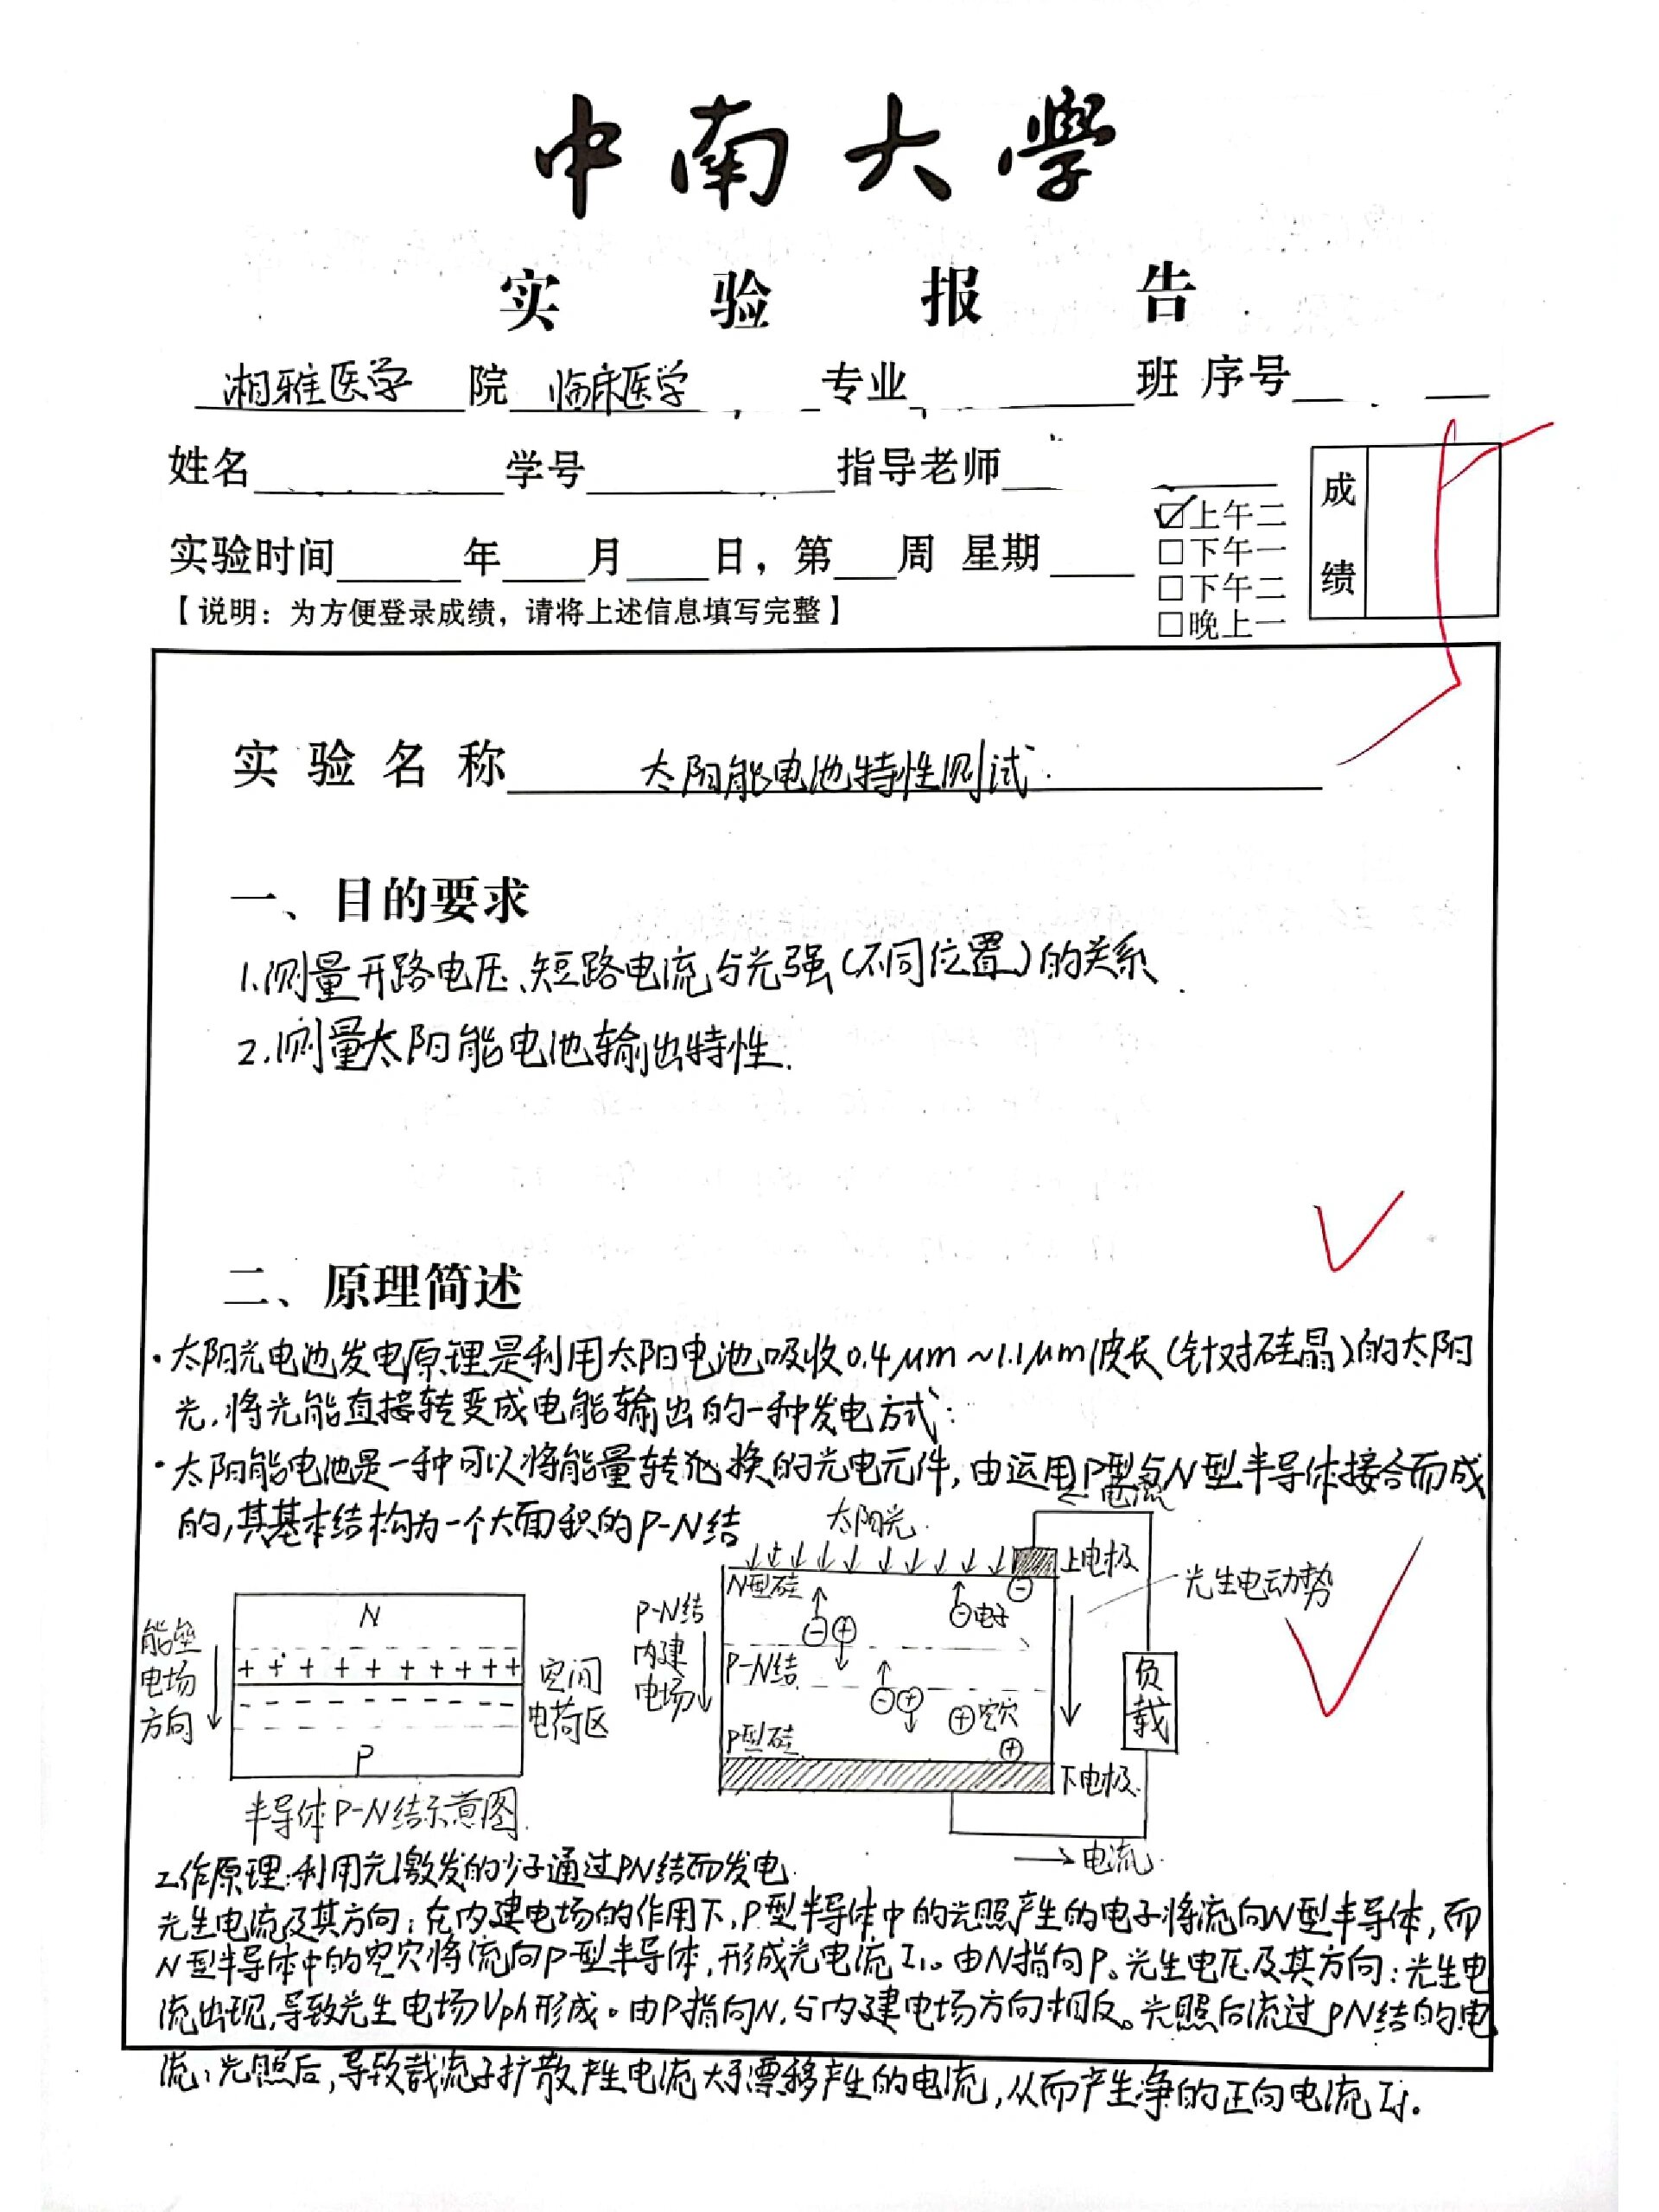 中南大學
实验报告
湘雅医学 院 临床医学 专业 班 序号
姓名 学号 指导老师
☑上午二
□下午一
□下午二
□晚上一
成绩
实验时间 年 月 日，第 周 星期
【说明：为方便登录成绩，请将上述信息填写完整】
实验名称 太阳能电池特性测试.
一、目的要求
1.测量开路电压、短路电流与光强(不同位置)的关系.
2.测量太阳能电池输出特性.
二、原理简述
·太阳光电池发电原理是利用太阳电池吸收0.4μm~1.1μm波长(针对硅晶)的太阳
光,将光能直接转变成电能输出的一种发电方式:
·太阳能电池是一种可以将能量转换的光电元件,由运用P型与N型半导体接合而成
的,其基本结构为一个大面积的P-N结
能垒电场方向
N
+ + + + + + + + + +
P
空间电荷区
半导体P-N结示意图.
太阳光.
←电流
上电极
光生电动势
N型硅
P-N结内建电场
电子
P-N结
空穴
P型硅
下电极.
负载
→电流.
工作原理:利用光激发的少子通过PN结而发电.
光生电流及其方向:在内建电场的作用下,P型半导体中的光照产生的电子将流向N型半导体,而
N型半导体中的空穴将流向P型半导体,形成光电流I₁。由N指向P。光生电压及其方向:光生电
流出现,导致光生电场Vph形成。由P指向N,与内建电场方向相反。光照后流过PN结的电
流:光照后,导致载流子扩散产生电流大于漂移产生的电流,从而产生净的正向电流IJ。